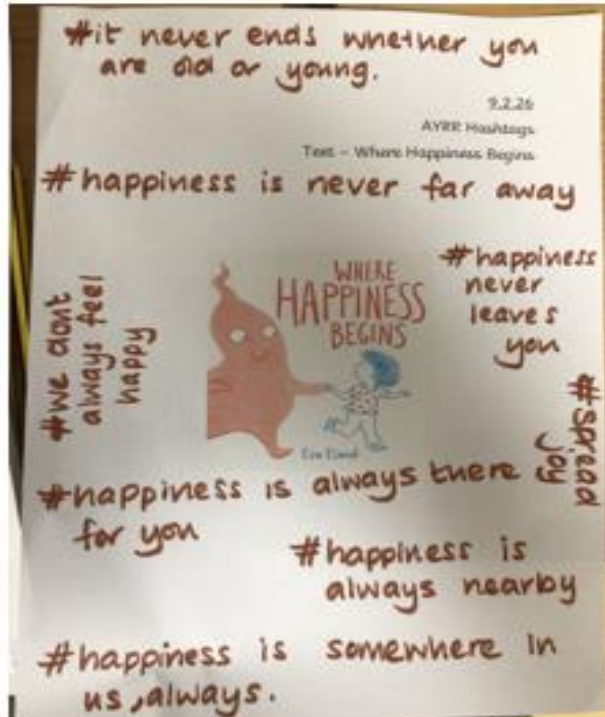 #it never ends whether you
are old or young.
9.2.26
AYRR Hashtags
Text – Where Happiness Begins
#happiness is never far away
#we dont
always feel
happy
WHERE
HAPPINESS
BEGINS
Eva Eland
#happiness
never
leaves
you
#spread
joy
#happiness is always there
for you
#happiness is
always nearby
#happiness is somewhere in
us, always.